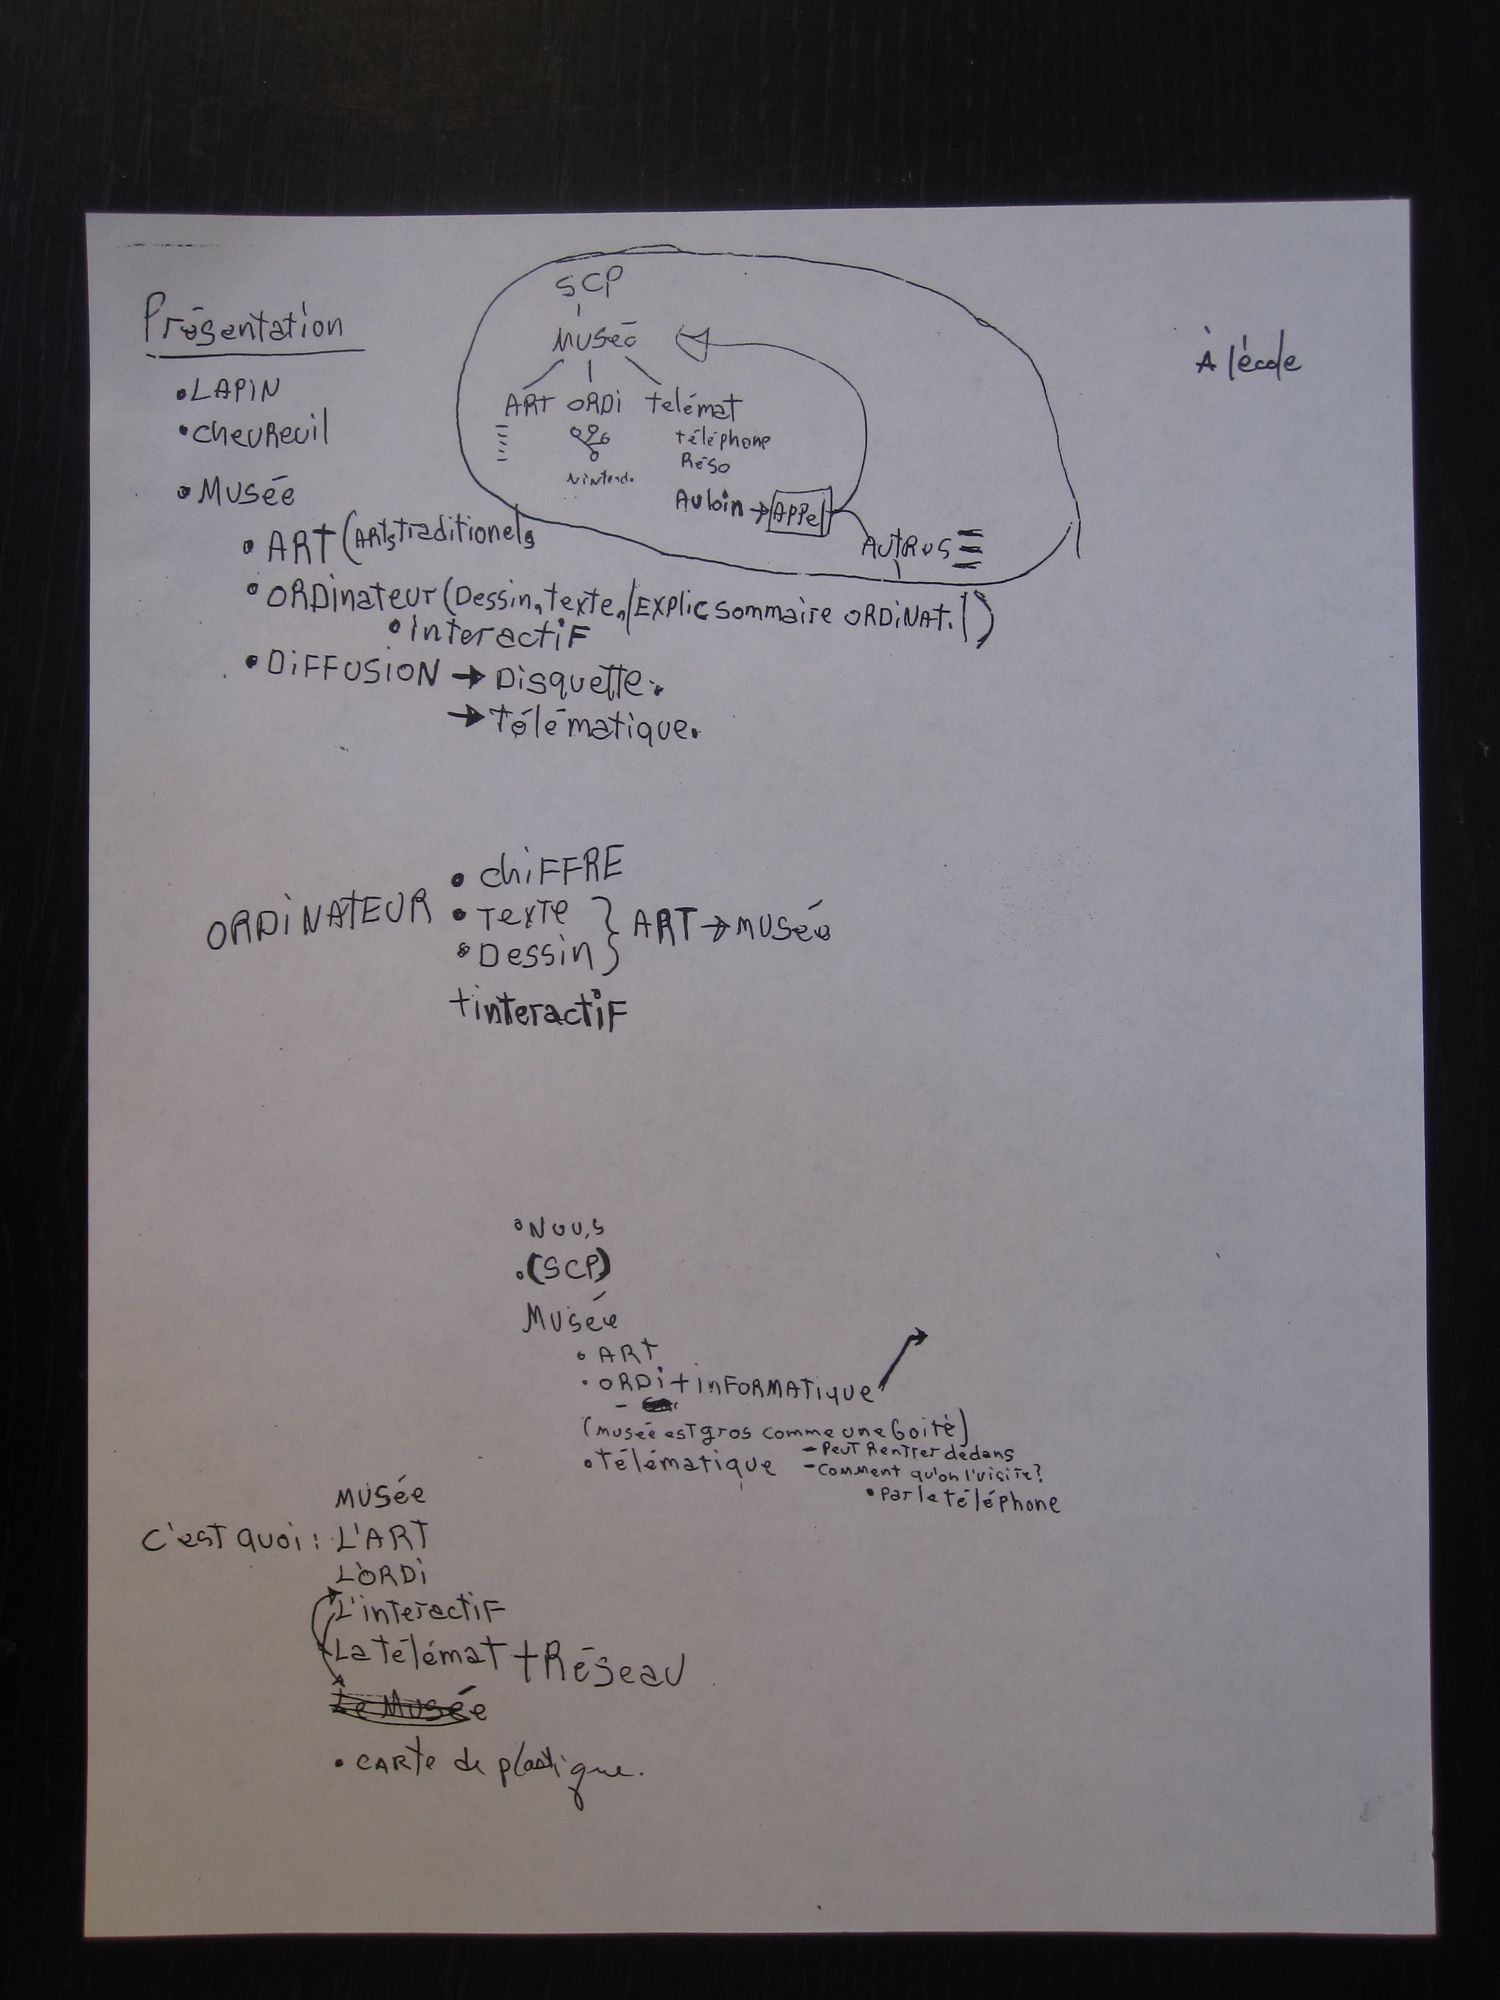 Présentation
• LAPIN
• chevReuil
• Musée
• ART (ARts traditionels
• ORDinateur (Dessin, texte, / EXPlic sommaire ORDiNAT. |)
• interactiF
• DiFFUSiON → Disquette.
→ télématique.
SCP
Musée
ART ORDi telémat
téléphone
Réso
Nintendo
Auloin → APPel
AUTRes
À l'école
ORDiNATEUR
• chiFFRE
• Texte
• Dessin
} ART → musée
+ interactiF
• Nous
• (SCP)
Musée
• ART
• ORDi + inFORMATique
(musée est gros comme une boite)
• télématique
- Peut Rentrer dedans
- Comment qu'on l'visite?
• par le téléphone
Musée
C'est quoi : L'ART
L'ORDi
L'interactiF
La télémat + Réseau
Le Musée
• CARte de plastique.